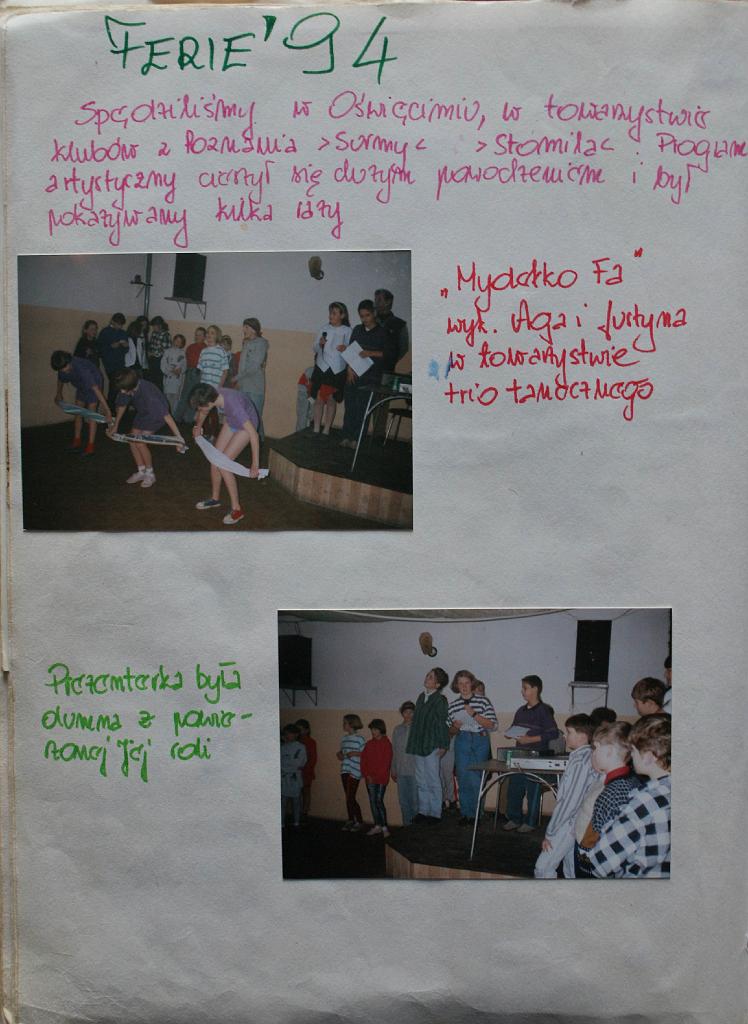 FERIE'94
Spędziliśmy w Oświęcimiu, w towarzystwie
klubów z Poznania >Surmy< >Stomila< Program
artystyczny cieszył się dużym powodzeniem i był
pokazywany kilka razy
„Mydełko Fa"
wyk. Aga i Justyna
w towarzystwie
trio tanecznego
Prezenterka była
dumna z powie-
rzonej jej roli